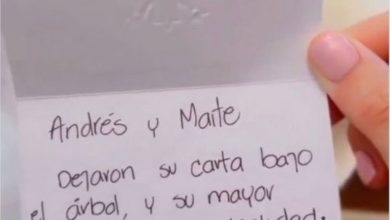 Andrés y Maite
Dejaron su carta bajo
el árbol, y su mayor